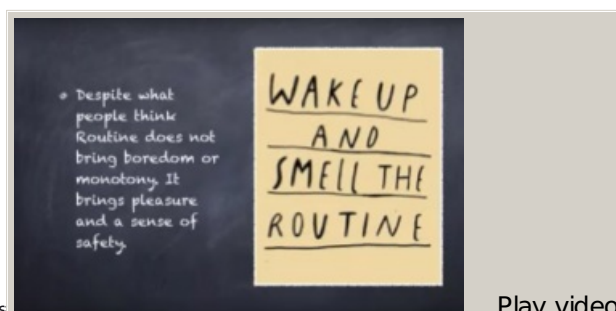 • Despite what
people think
Routine does not
bring boredom or
monotony. It
brings pleasure
and a sense of
safety.
WAKE UP
AND
SMELL THE
ROUTINE
s
Play video